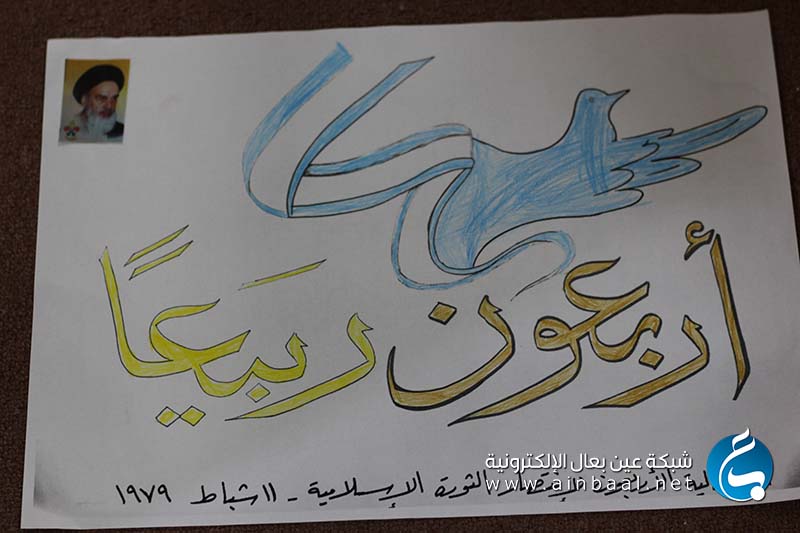 أربعون ربيعًا
شبكة عين بعال الإلكترونية
www.ainbaal.net
لانتصار الثورة الإسلامية - ١١ شباط ١٩٧٩